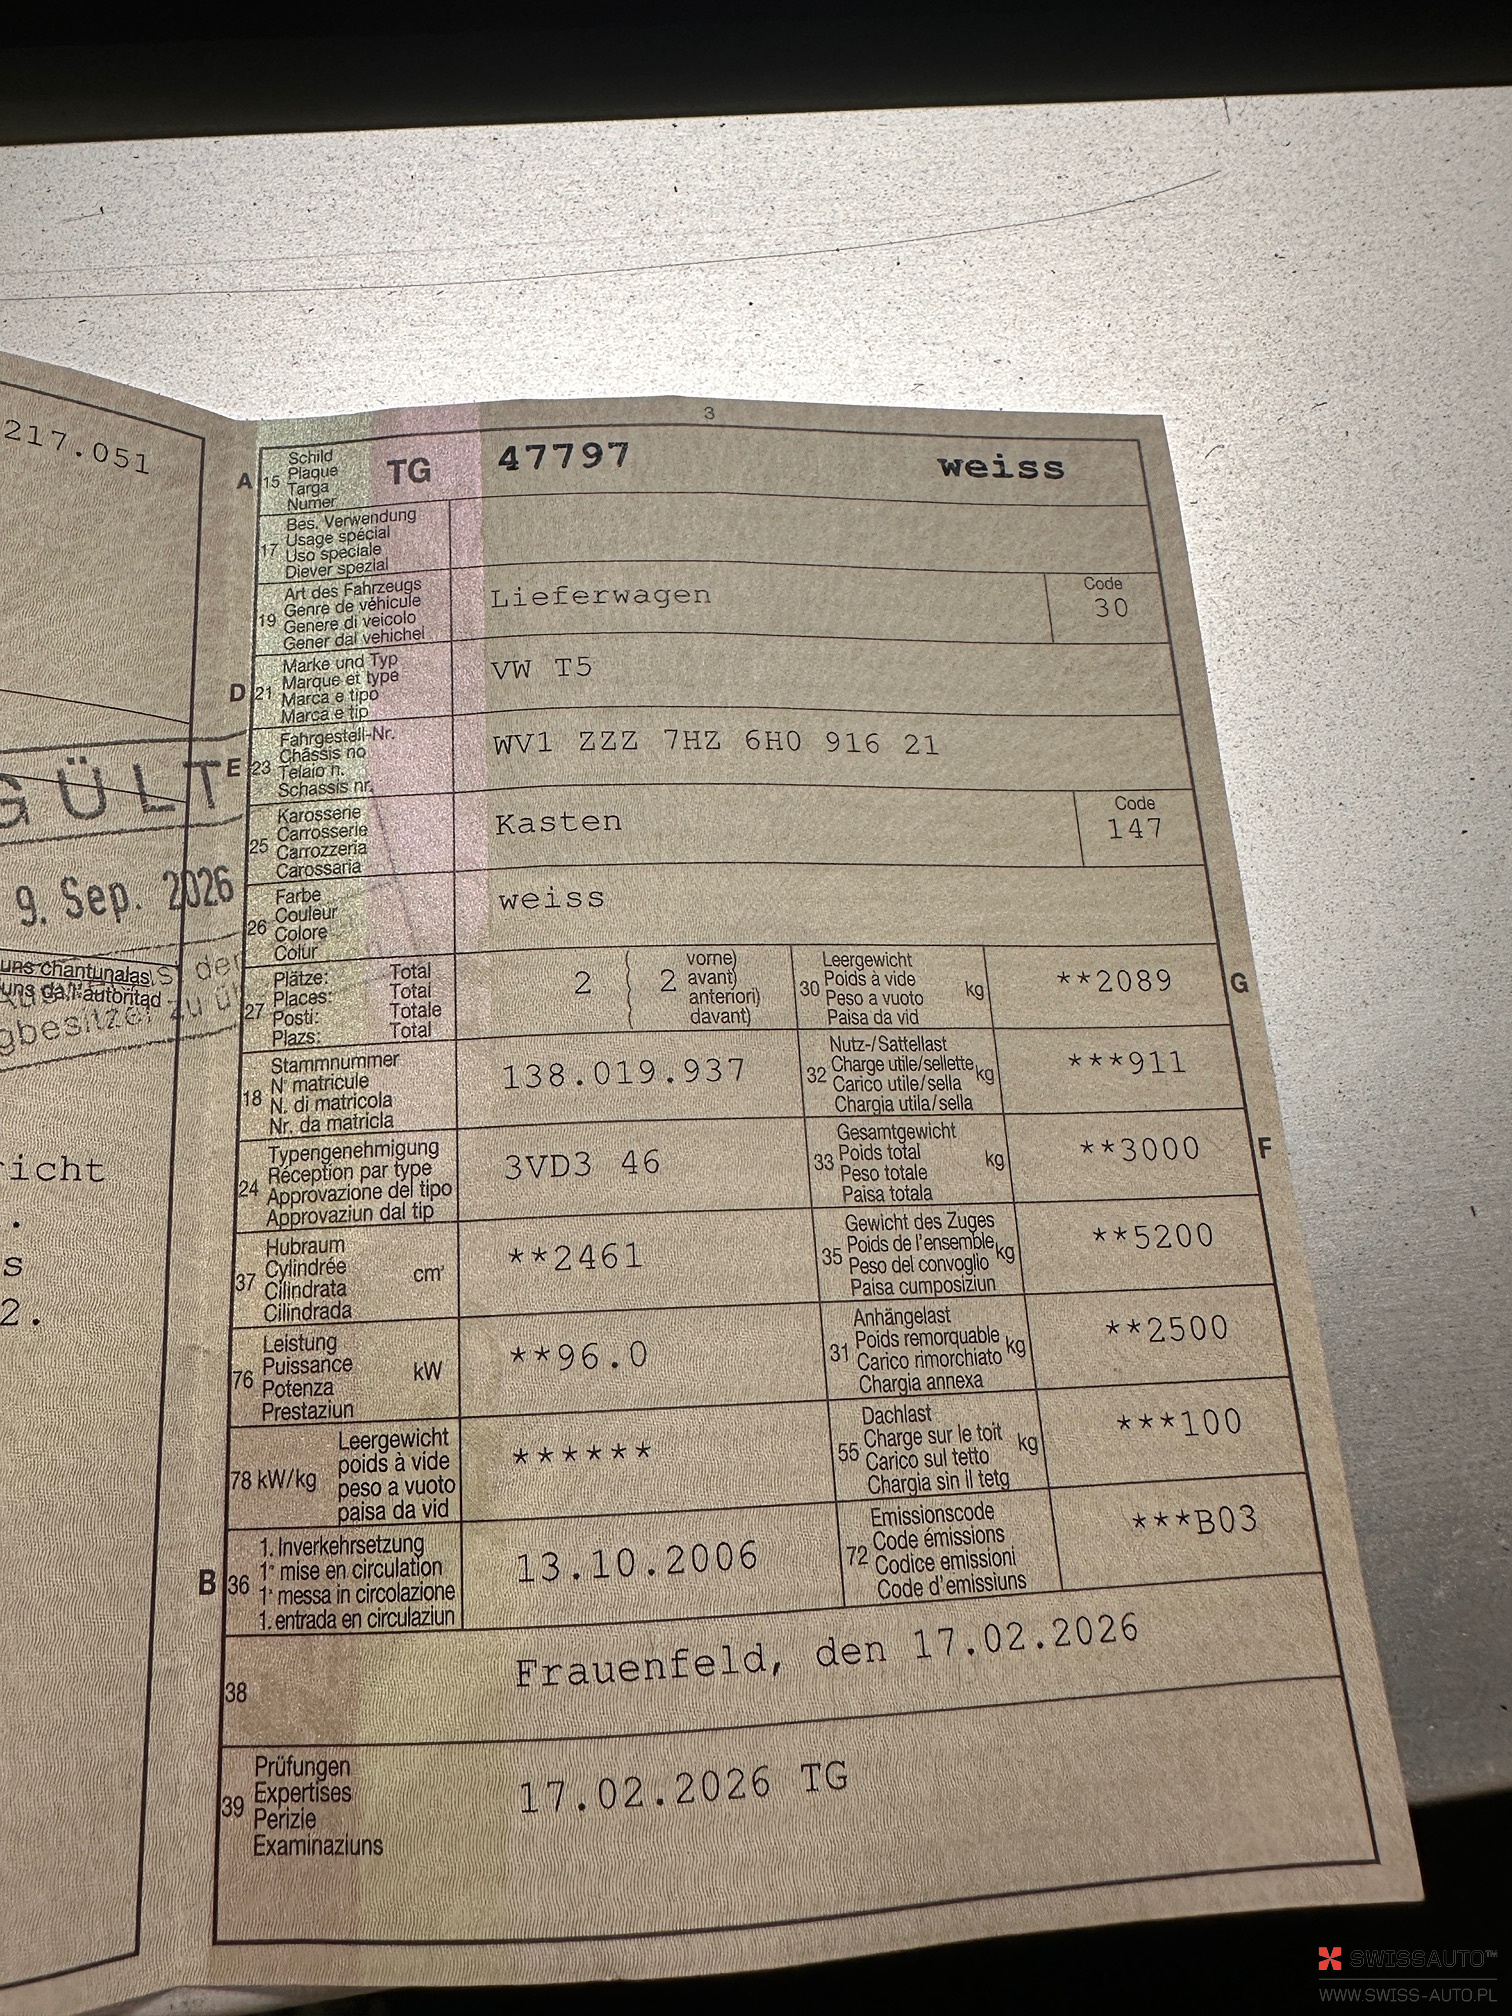 217.051
GÜLT
9. Sep. 2026
uns chantunalas
uns da l'autoritad
s der
gbesitzer zu ü
icht
.
s
2.
3
A 15 Schild
Plaque
Targa
Numer
TG 47797 weiss
17 Bes. Verwendung
Usage spécial
Uso speciale
Diever spezial
19 Art des Fahrzeugs
Genre de véhicule
Genere di veicolo
Gener dal vehichel
Lieferwagen
Code
30
D 21 Marke und Typ
Marque et type
Marca e tipo
Marca e tip
VW T5
E 23 Fahrgestell-Nr.
Châssis no
Telaio n.
Schassis nr.
WV1 ZZZ 7HZ 6H0 916 21
25 Karosserie
Carrosserie
Carrozzeria
Carossaria
Kasten
Code
147
26 Farbe
Couleur
Colore
Colur
weiss
27 Plätze: Total
Places: Total
Posti: Totale
Plazs: Total
2 2 vorne)
avant)
anteriori)
davant)
30 Leergewicht
Poids à vide
Peso a vuoto
Paisa da vid
kg **2089 G
18 Stammnummer
N° matricule
N. di matricola
Nr. da matricla
138.019.937
32 Nutz-/Sattellast
Charge utile/sellette
Carico utile/sella
Chargia utila/sella
kg ***911
24 Typengenehmigung
Réception par type
Approvazione del tipo
Approvaziun dal tip
3VD3 46
33 Gesamtgewicht
Poids total
Peso totale
Paisa totala
kg **3000 F
37 Hubraum
Cylindrée
Cilindrata
Cilindrada
cm³ **2461
35 Gewicht des Zuges
Poids de l'ensemble
Peso del convoglio
Paisa cumposiziun
kg **5200
76 Leistung
Puissance
Potenza
Prestaziun
kW **96.0
31 Anhängelast
Poids remorquable
Carico rimorchiato
Chargia annexa
kg **2500
78 kW/kg Leergewicht
poids à vide
peso a vuoto
paisa da vid
******
55 Dachlast
Charge sur le toit
Carico sul tetto
Chargia sin il tetg
kg ***100
B 36 1. Inverkehrsetzung
1ᵉ mise en circulation
1ᵃ messa in circolazione
1. entrada en circulaziun
13.10.2006
72 Emissionscode
Code émissions
Codice emissioni
Code d'emissiuns
***B03
38 Frauenfeld, den 17.02.2026
39 Prüfungen
Expertises
Perizie
Examinaziuns
17.02.2026 TG
SWISSAUTO™
WWW.SWISS-AUTO.PL